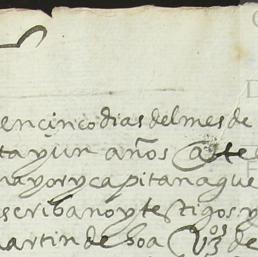 en cinco dias del mes de
ta y un años ante
mayor y capitan a gue
scribano y testigos y
martin de boa vºs de